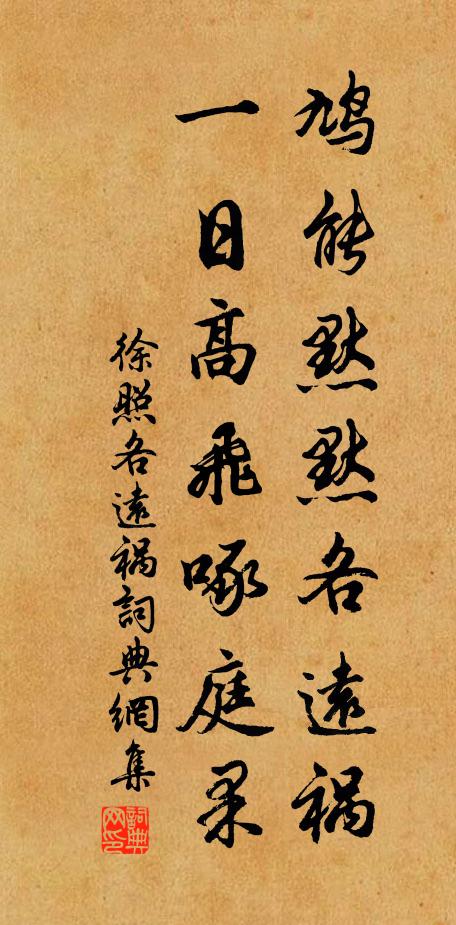 鳩能默默各遠禍
一日高飛啄庭果
徐照各遠禍詞典網集
詞典網印